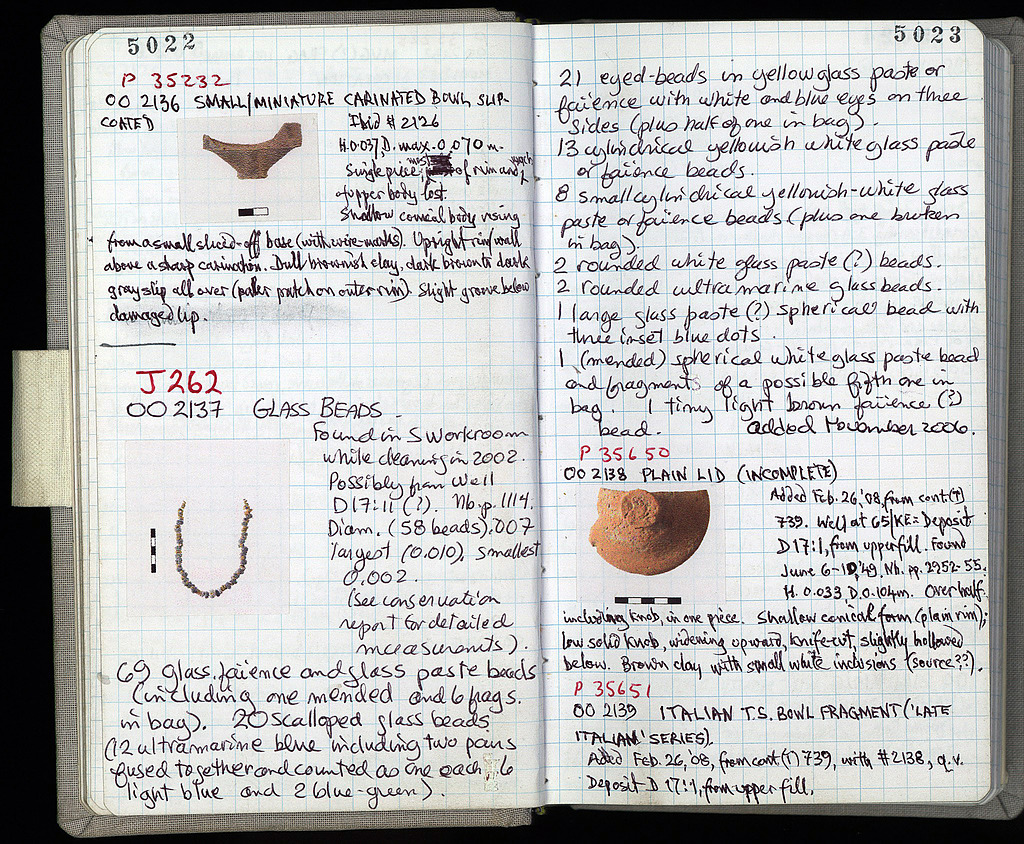 5022
P 35232
OO 2136 SMALL/MINIATURE CARINATED BOWL SLIP-
COATED
Ibid # 2126
H. 0.037, D. max. 0.070 m.
Single piece; most of rim and much
of upper body lost.
Shallow conical body rising
from a small sliced-off base (with wire-marks). Upright rim/wall
above a sharp carination. Dull brownish clay, dark brown to dark
gray slip all over (paler patch on outer rim). Slight groove below
damaged lip.
J 262
OO 2137 GLASS BEADS.
Found in S Workroom
while cleaning in 2002.
Possibly from Well
D 17:11 (?). Nb. p. 1114.
Diam. (58 beads) .007
largest (0.010), smallest
0.002.
(see conservation
report for detailed
measurements).
69 glass, faience and glass paste beads
(including one mended and 6 frags.
in bag). 20 scalloped glass beads
(12 ultramarine blue including two pairs
fused together and counted as one each, 6
light blue and 2 blue-green).
5023
21 eyed-beads in yellow glass paste or
faience with white and blue eyes on three
sides (plus half of one in bag).
13 cylindrical yellowish white glass paste
or faience beads.
8 small cylindrical yellowish-white glass
paste or faience beads (plus one broken
in bag).
2 rounded white glass paste (?) beads.
2 rounded ultramarine glass beads.
1 large glass paste (?) spherical bead with
three inset blue dots.
1 (mended) spherical white glass paste bead
and fragments of a possible fifth one in
bag. 1 tiny light brown faience (?)
bead. added November 2006.
P 35650
OO 2138 PLAIN LID (INCOMPLETE)
Added Feb. 26, '08, from cont (†)
739. Well at 65/KE = Deposit
D 17:1, from upper fill. Found
June 6-10, '49, Nb. pp. 2252-55.
H. 0.033, D. 0.104m. Over half,
including knob, in one piece. Shallow conical form (plain rim);
low solid knob, widening upward, knife-cut, slightly hollowed
below. Brown clay, with small white inclusions (source??).
P 35651
OO 2139 ITALIAN T.S. BOWL FRAGMENT ('LATE
ITALIAN' SERIES).
Added Feb. 26, '08, from cont (†) 739, with #2138, q.v.
Deposit D 17:1, from upper fill,